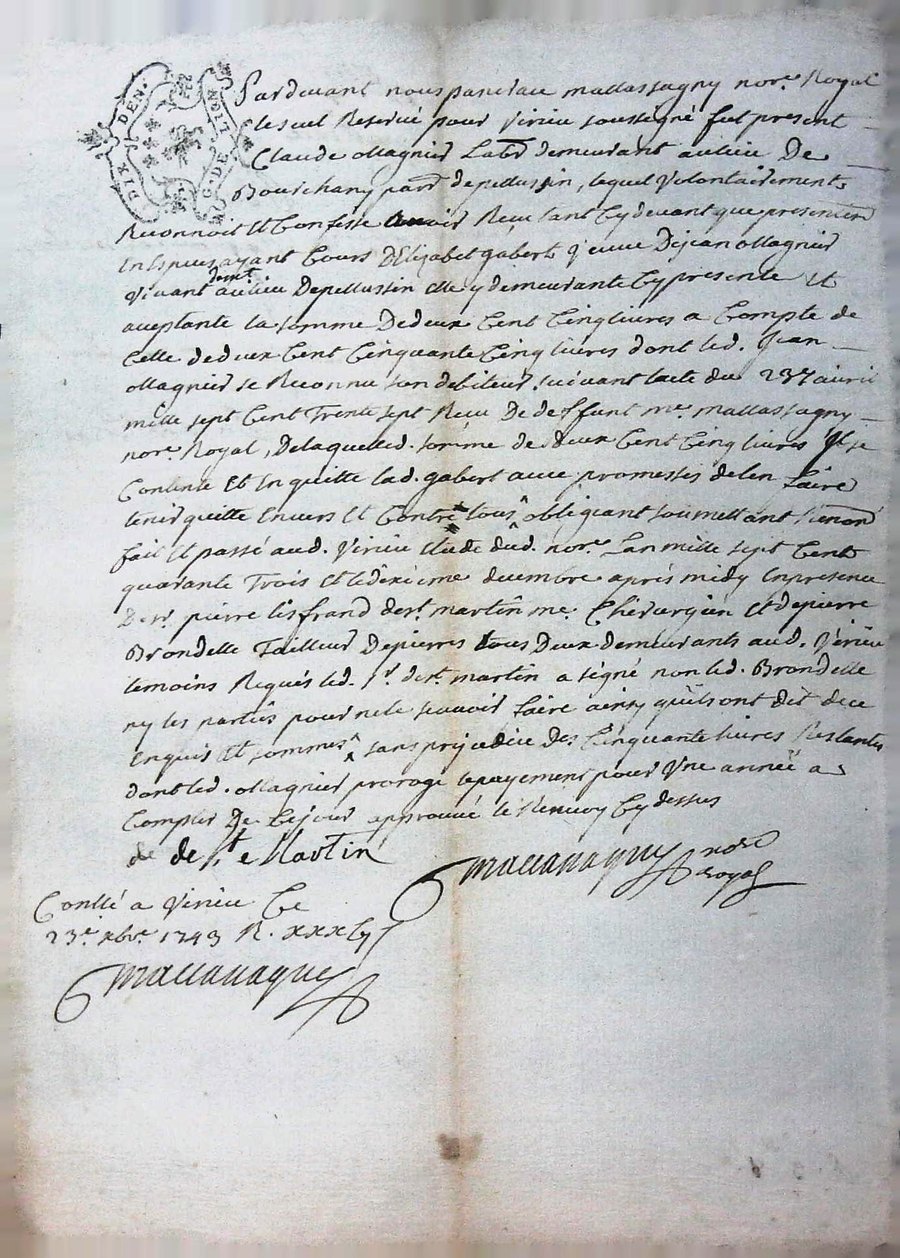 DIX DEN.
G. DE LION
Pardevant nous pancrace mattassagny nore. Royal
le seul Reservé pour Virieu soussigné fut present
Claude Magnier Labr. demeurant au lieu De
Bourchany parr. de pellussin, lequel Volontairement
Reconnoit Et Confesse avoir Reçu tant Cy devant que presentem.
En Espèces ayant Cours D'Elizabet gabert Veuve De jean Magnier
Vivant demt. au lieu De pellussin elle y demeurante Cy presente Et
aceptante la somme De deux Cent Cinq livres a Compte de
Celle de deux Cent Cinquante Cinq livres dont led. Jean
Magnier se Reconnu son debiteur suivant l'acte du 23e avril
mille sept Cent Trente sept Recu De deffunt me. mattassagny
nore. Royal, De laquelle d. somme de deux Cent Cinq livres Il se
Contente Et En quitte lad. gabert avec promesses de l'en faire
tenir quitte Envers Et Contre tous obligeant soumettant renon
fait Et passé aud. Virieu Etude dud. nore. Lan mille sept Cent
quarante Trois Et le dixieme decembre après midy En presence
De sr. pierre lisfrand de st. martin me. Chirurgien Et de pierre
Brondelle Tailleur De pierres tous Deux demeurants aud. Virieu
temoins Requis led. sr. de st. martin a signé non led. Brondelle
ny les parties pour ne le scavoir faire ainsy qu'ils ont dit de ce
Enquis Et sommés ^ sans prejudice des Cinquante livres Restantes
dont led. Magnier proroge le payement pour Une année a
Compter De Ce jour approuvé le Renvoy Cy dessus
de st e Martin
mattassagny nore
Royal
Contlé a Virieu Ce
23e. xbre. 1743 R.
mattassagny